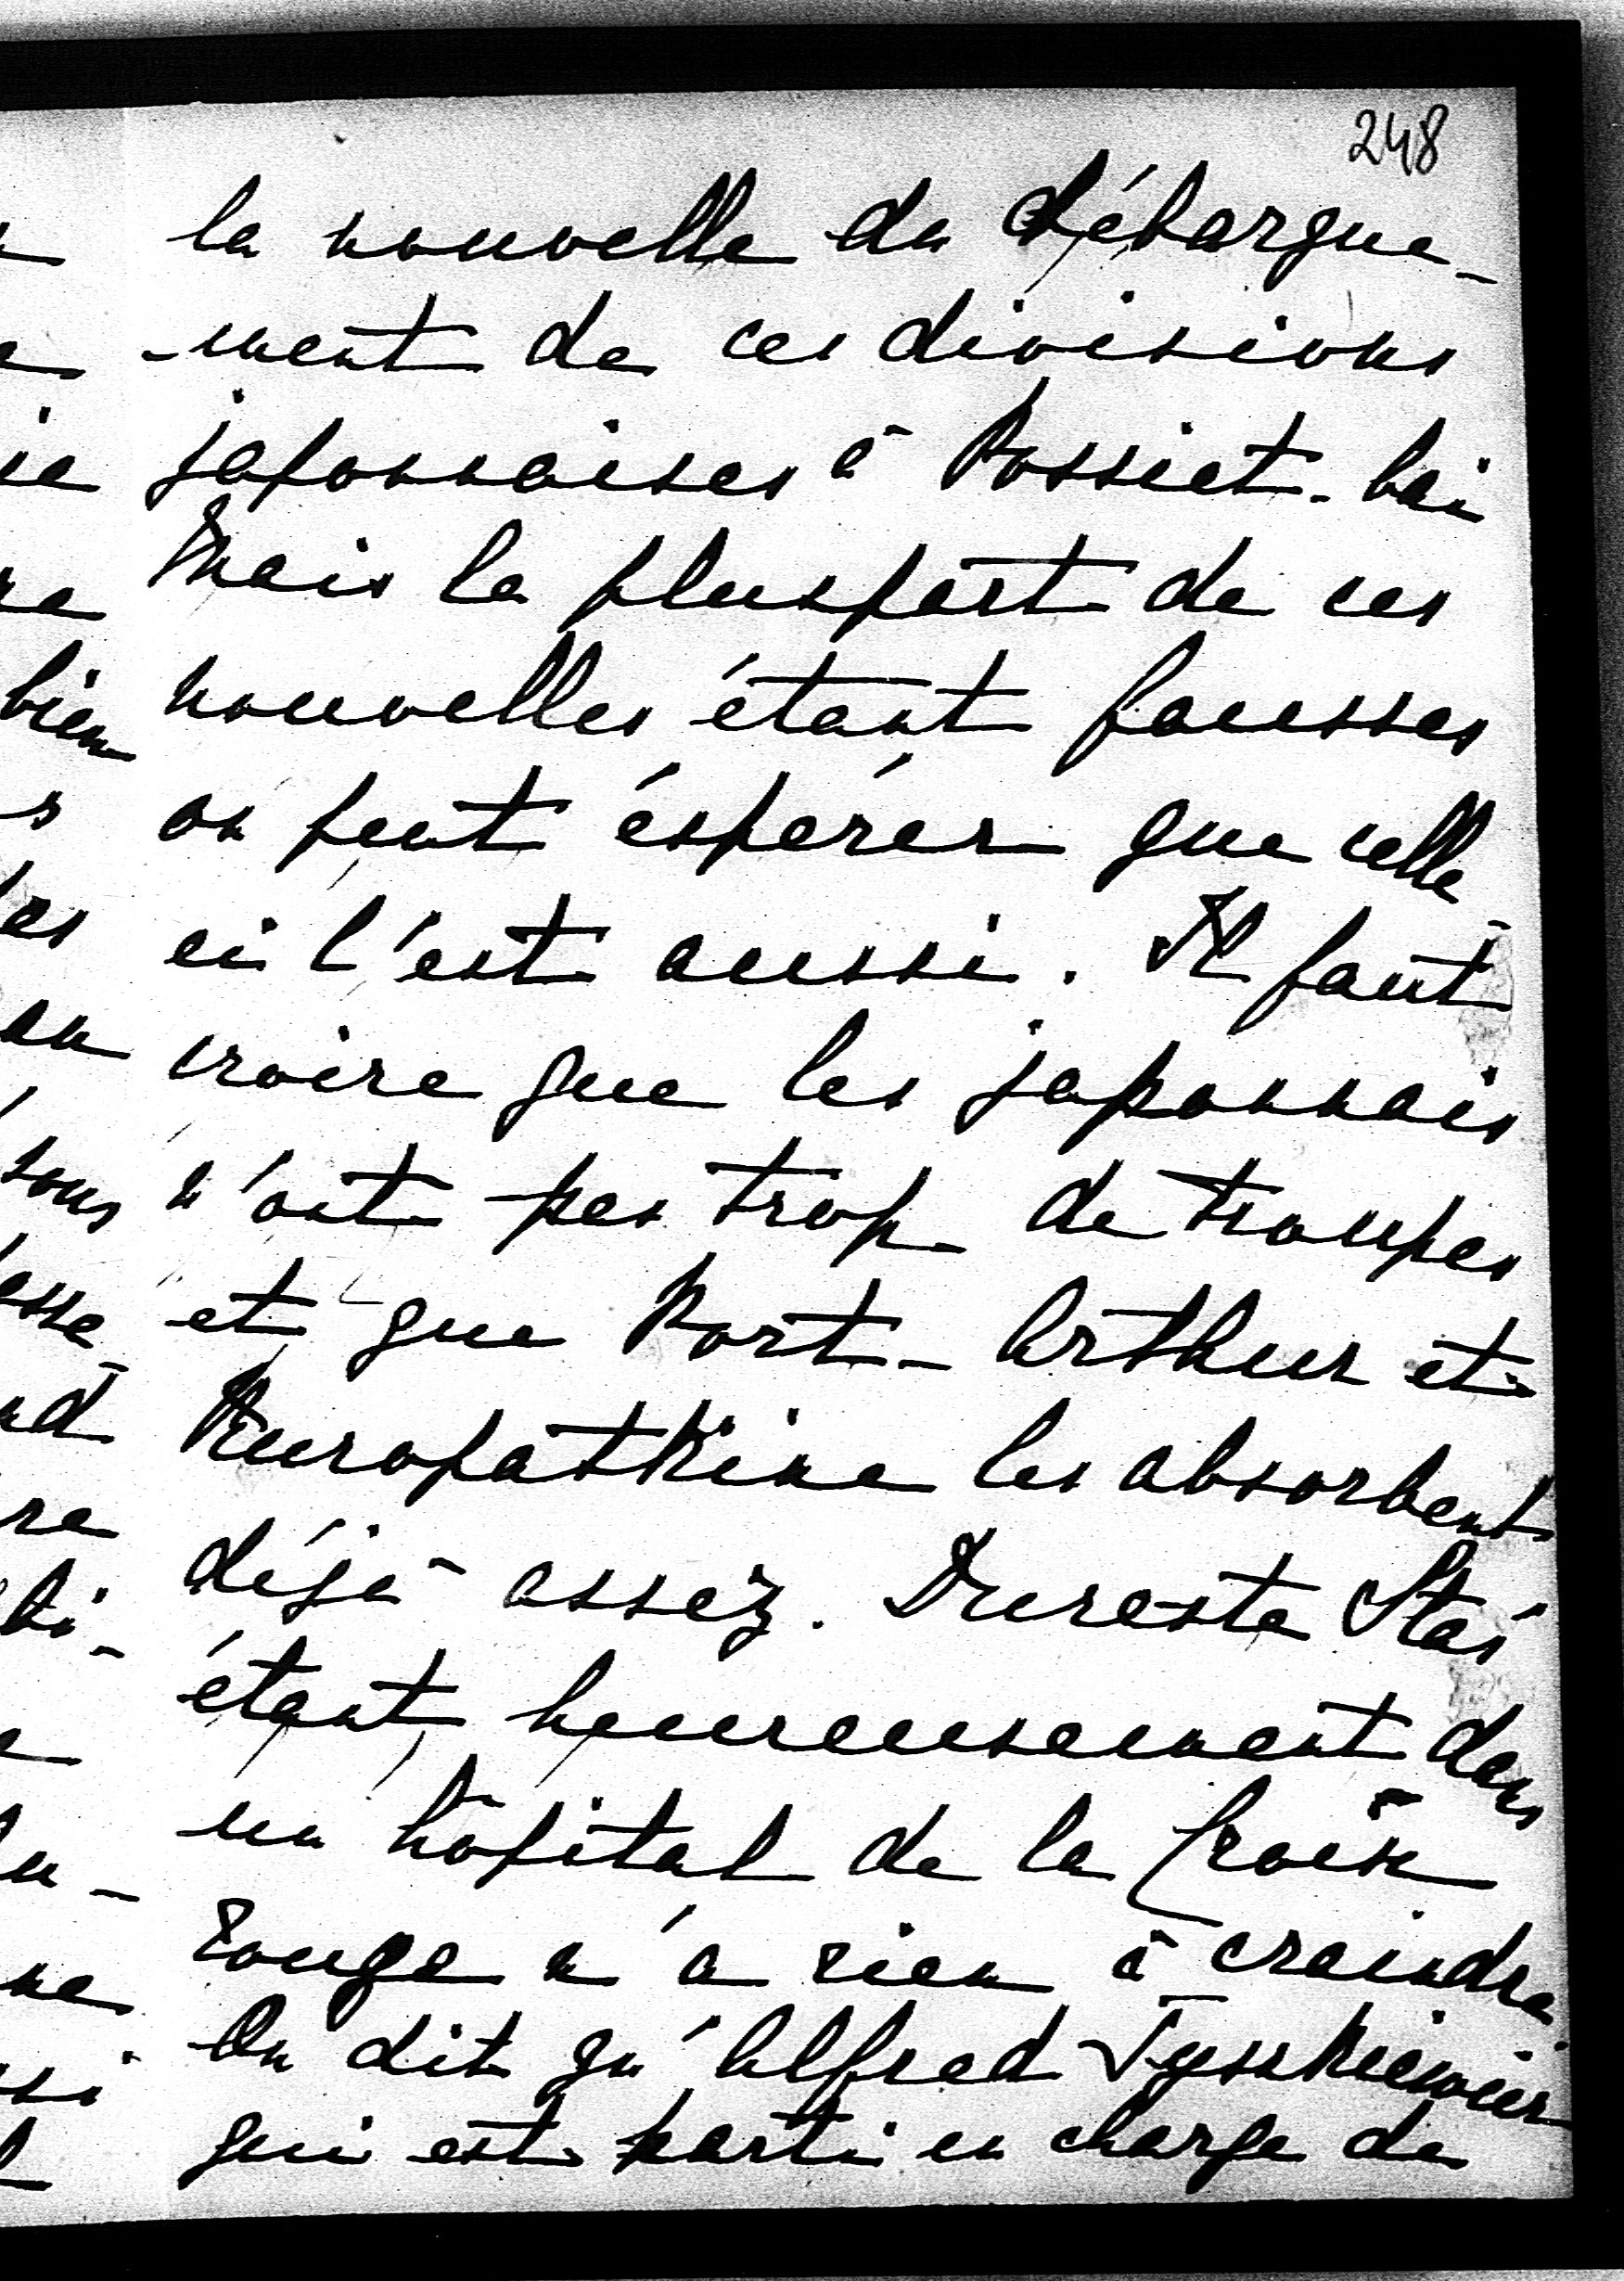 248
la nouvelle du débarque-
-ment de ces divisions
japonnaises à Possiet-bai
Mais la pluspart de ces
nouvelles étant fausses
on peut éspérer que celle-
ci l'est aussi. Il faut
croire que les japonnais
n'ont pas trop de troupes
et que Port-Arthur et
Kuropatkine les absorbent
déjà assez. Dureste Staś
étant heureusement dans
un hôpital de la Croix
rouge n'a rien à craindre.
On dit qu'Alfred Tyszkiewicz
qui est parti en charge de